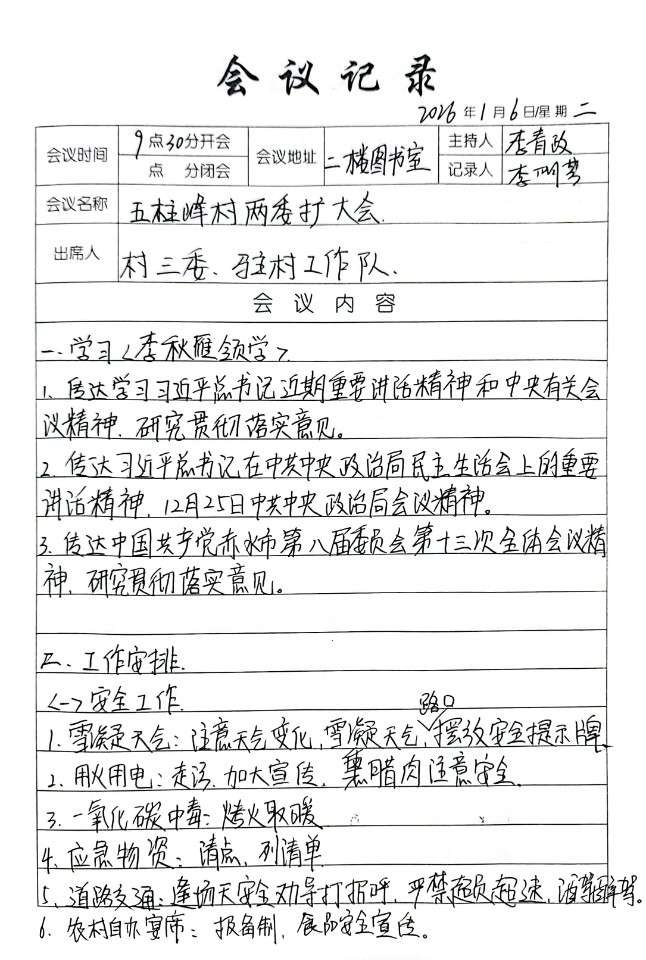 会议记录
2026年1月6日/星期二
会议时间 9点30分开会 会议地址 二楼图书室 主持人 李青政
点 分闭会 记录人 李
会议名称 五柱峰村两委扩大会.
出席人 村三委、驻村工作队.
会议内容
一.学习<李秋雁领学>
1.传达学习习近平总书记近期重要讲话精神和中央有关会
议精神.研究贯彻落实意见。
2.传达习近平总书记在中共中央政治局民主生活会上的重要
讲话精神,12月25日中共中央政治局会议精神。
3.传达中国共产党赤水市第八届委员会第十三次全体会议精
神,研究贯彻落实意见。
二、工作安排.
<一>安全工作.
路口
1.雪凝天气:注意天气变化,雪凝天气,摆放安全提示牌、
2.用火用电:走访.加大宣传,熏腊肉注意安全.
3.一氧化碳中毒:烤火取暖
4.应急物资:清点,列清单
5、道路交通:逢场天安全劝导打招呼,严禁超员超速,酒驾醉驾。
6.农村自办宴席:报备制,食品安全宣传。